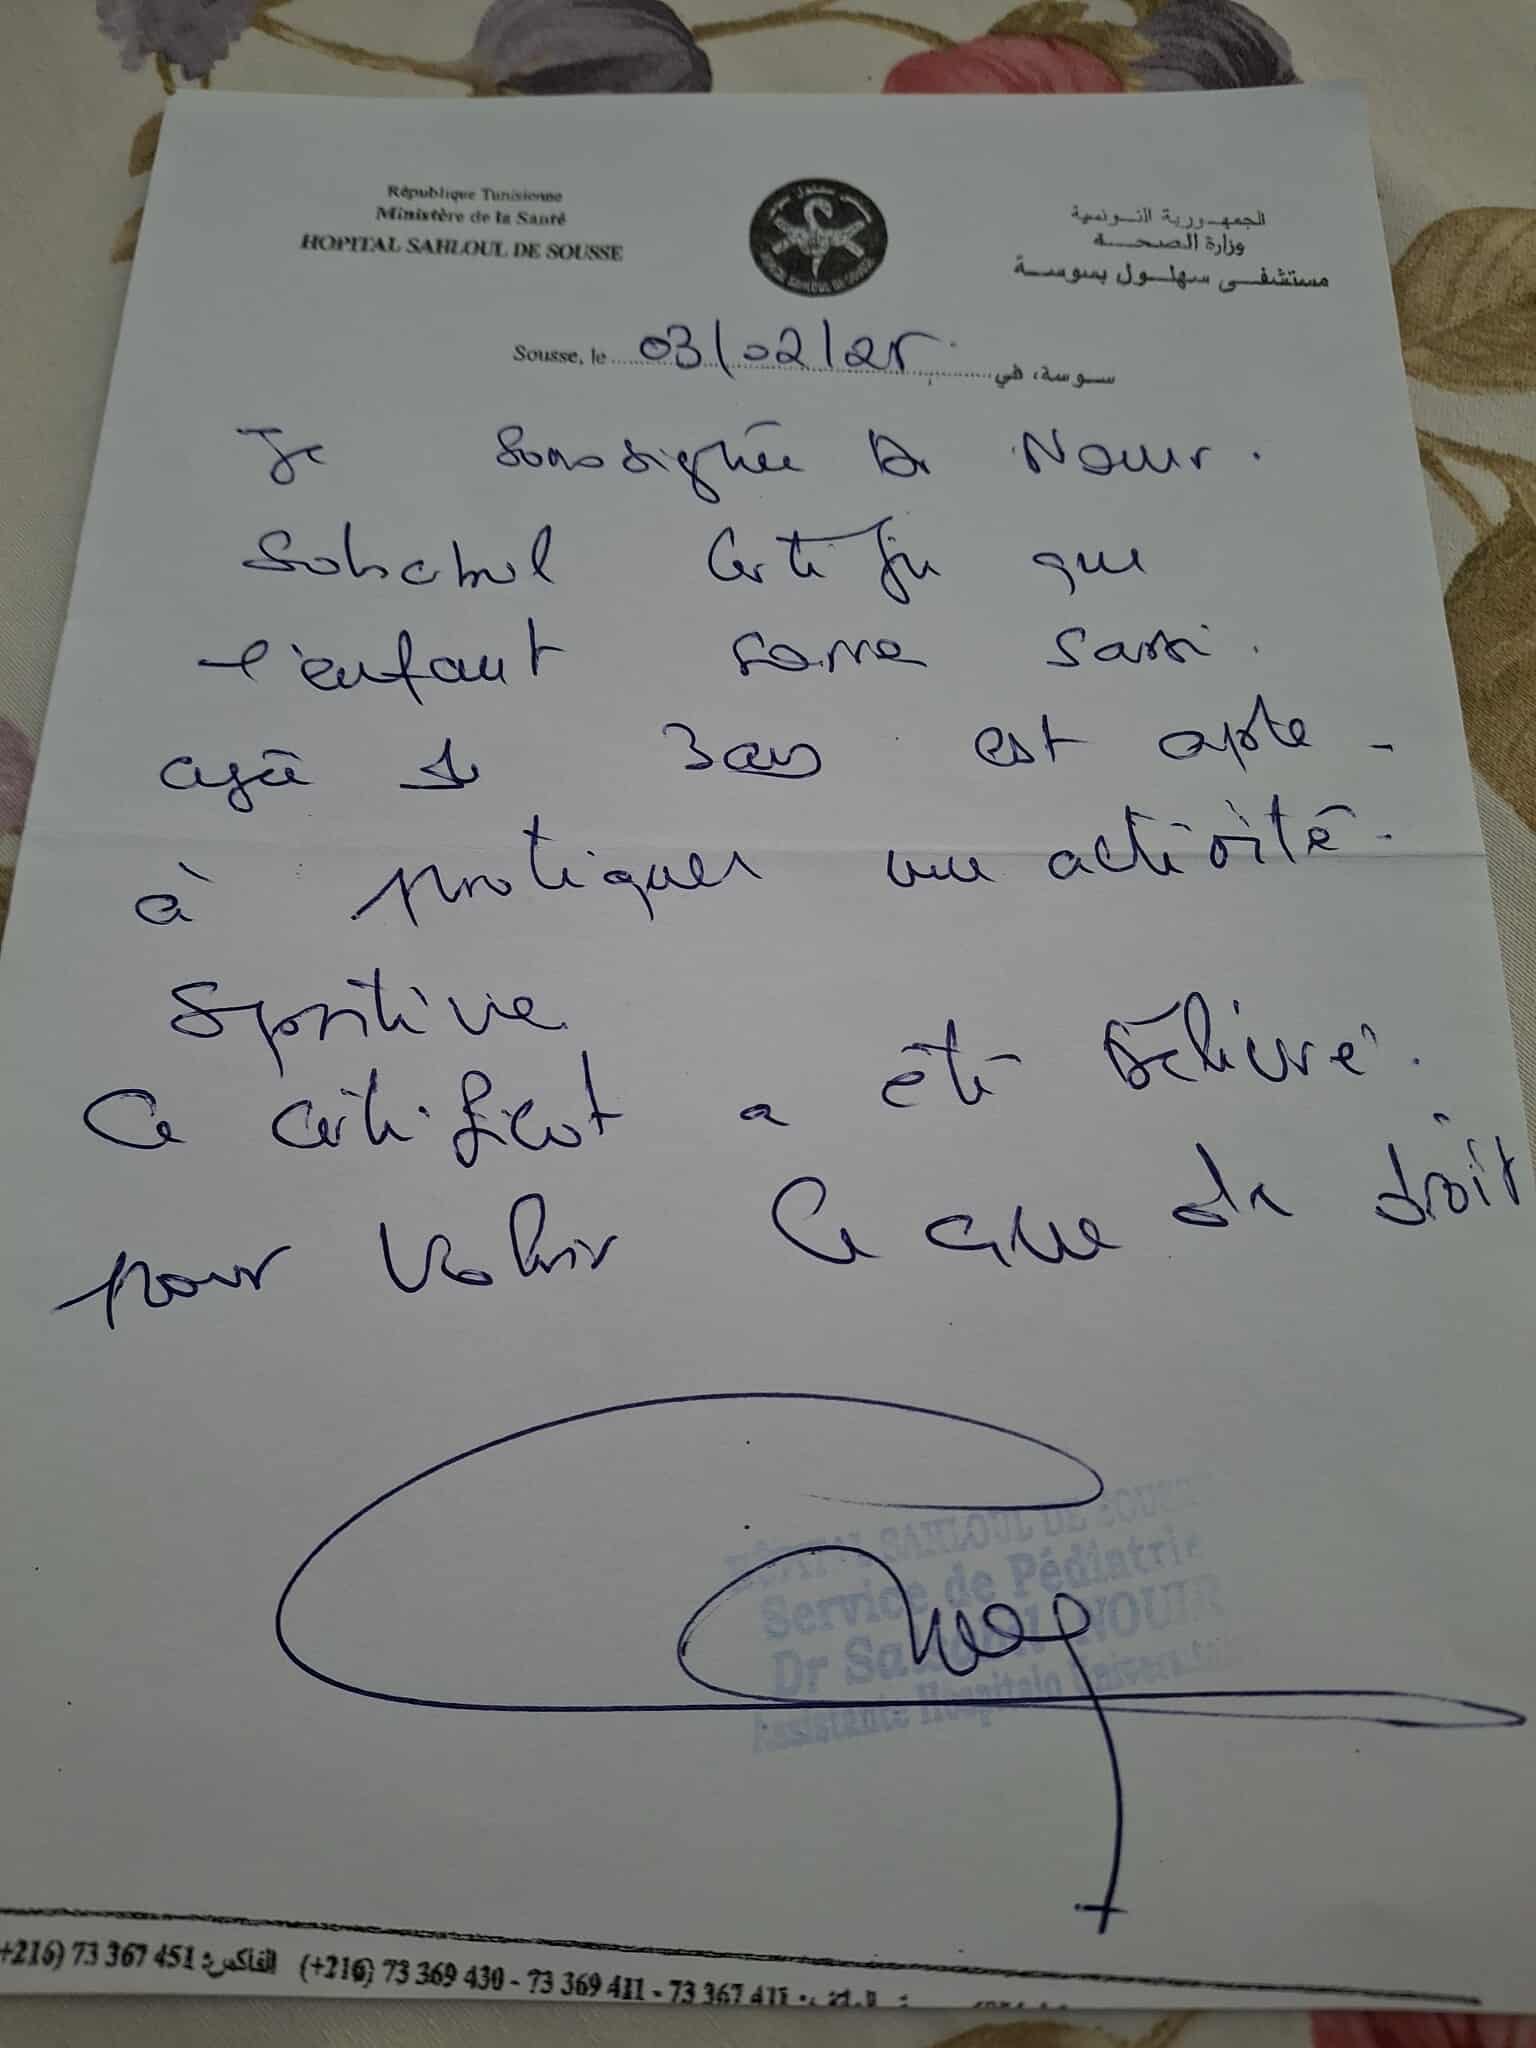 République Tunisienne
Ministère de la Santé
HOPITAL SAHLOUL DE SOUSSE
الجمهورية التونسية
وزارة الصحة
مستشفى سهلول بسوسة
Sousse, le 03/02/25 سوسة، في
Je soussignée Dr Nour
certifie que
l'enfant Sarra Sassi
agée de 3 ans est apte
à pratiquer une activité
sportive
Ce certificat a été délivré
pour valoir ce que de droit
HÔPITAL SAHLOUL DE SOUSSE
Service de Pédiatrie
Dr NOUR
Assistante Hospitalo Universitaire
+216) 73 367 451 الفاكس: (+216) 73 369 430 - 73 369 411 - 73 367 411